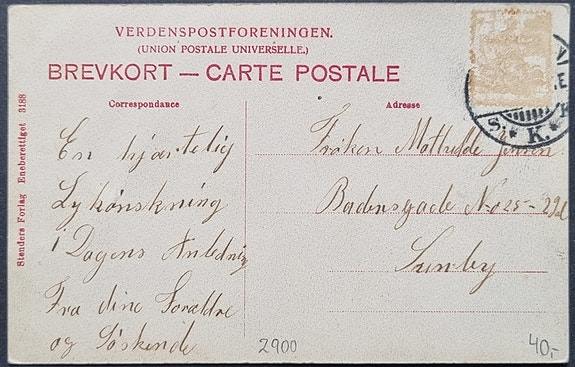 VERDENSPOSTFORENINGEN.
(UNION POSTALE UNIVERSELLE.)
BREVKORT — CARTE POSTALE
Correspondance
En hjærtelig
Lykønskning
i Dagens Anledning
Fra dine Foræl­dre
og Søskende
Adresse
Frøken Mathilde Jensen
Badensgade No 25 - 2 Sal
Sunby
Stenders Forlag Eneberettiget 3188
K.
2900
40,-